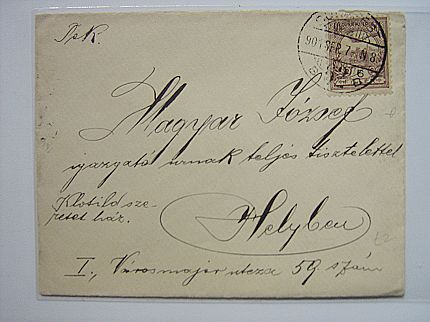 Tsk.
901 SEP. 7. N 8
Magyar József
igazgató urnak teljes tisztelettel
Klotild sze-
retet ház.
Helyben
I., Városmajor utcza 59. szám